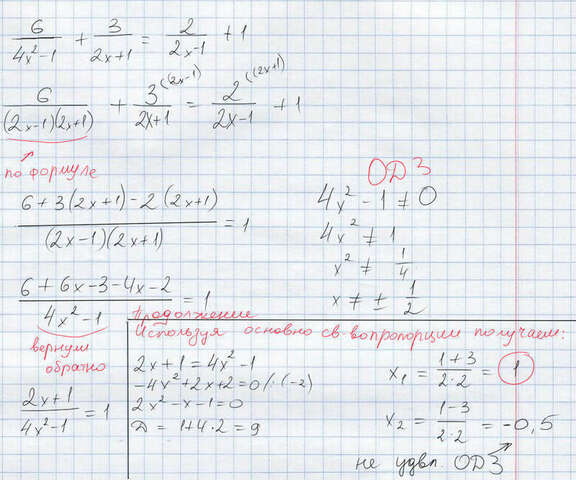 6/(4x²-1) + 3/(2x+1) = 2/(2x-1) + 1
6/((2x-1)(2x+1)) + 3^((2x-1)/(2x+1) = 2^((2x+1)/(2x-1) + 1
по формуле
(6+3(2x+1)-2(2x+1))/((2x-1)(2x+1)) = 1
(6+6x-3-4x-2)/(4x²-1) = 1
вернули
обратно
(2x+1)/(4x²-1) = 1
ОДЗ
4x²-1≠0
4x²≠1
x²≠ 1/4
x≠± 1/2
Продолжение
Используя основно св-во пропорции получаем:
2x+1=4x²-1
-4x²+2x+2=0/:(-2)
2x²-x-1=0
D = 1+4·2=9
x₁ = (1+3)/(2·2) = 1
x₂ = (1-3)/(2·2) = -0,5
не удвл. ОДЗ